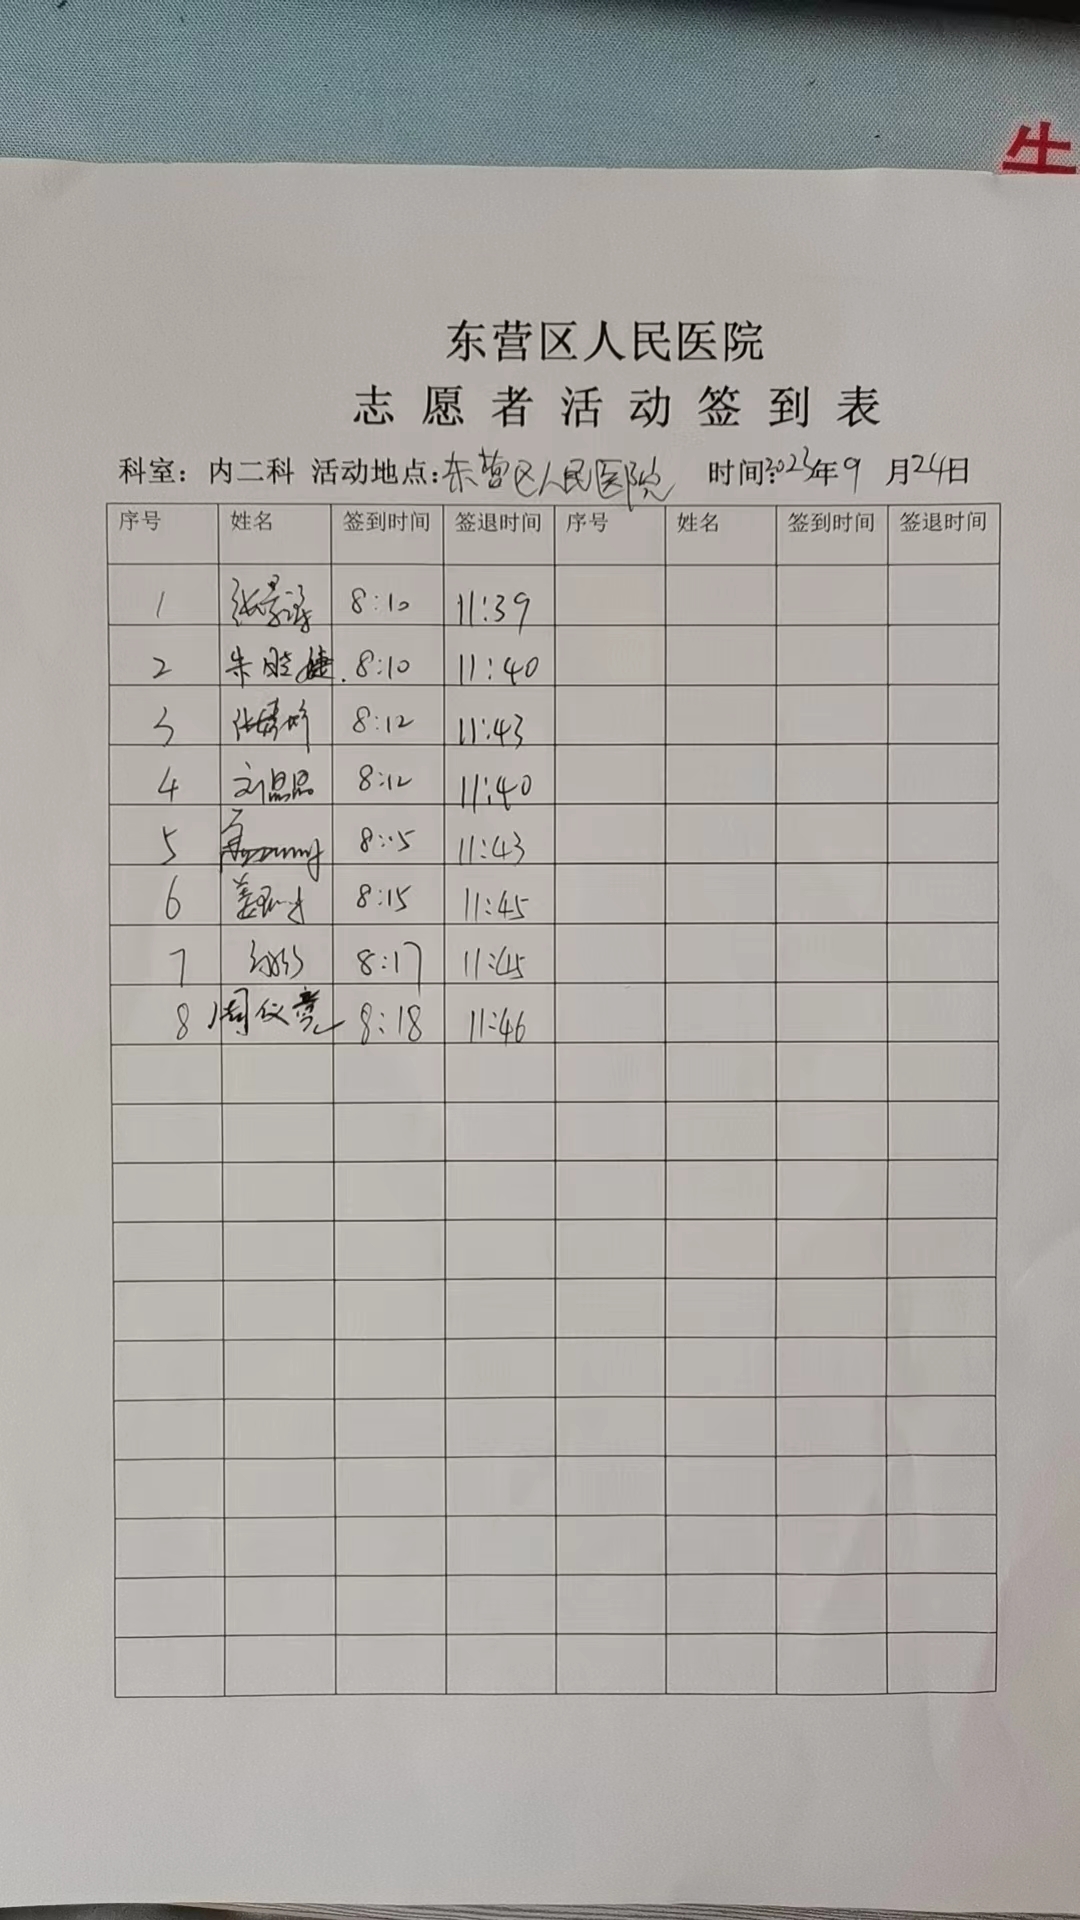 生
东营区人民医院
志愿者活动签到表
科室：内二科 活动地点:东营区人民医院 时间:2023年9月24日
序号 姓名 签到时间 签退时间 序号 姓名 签到时间 签退时间
1 8:10 11:39
2 朱晓婕 8:10 11:40
3 8:12 11:43
4 刘思思 8:12 11:40
5 8:15 11:43
6 8:15 11:45
7 8:17 11:45
8 周仪亮 8:18 11:46